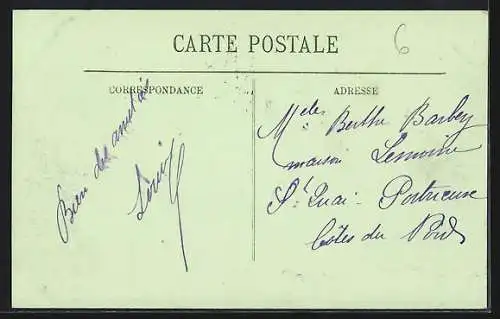 CARTE POSTALE
6
CORRESPONDANCE
ADRESSE
Bien des amitiés
Melle Berthe Barbey
maison Lemoine
St Quai-Portrieux
Côtes du Nord